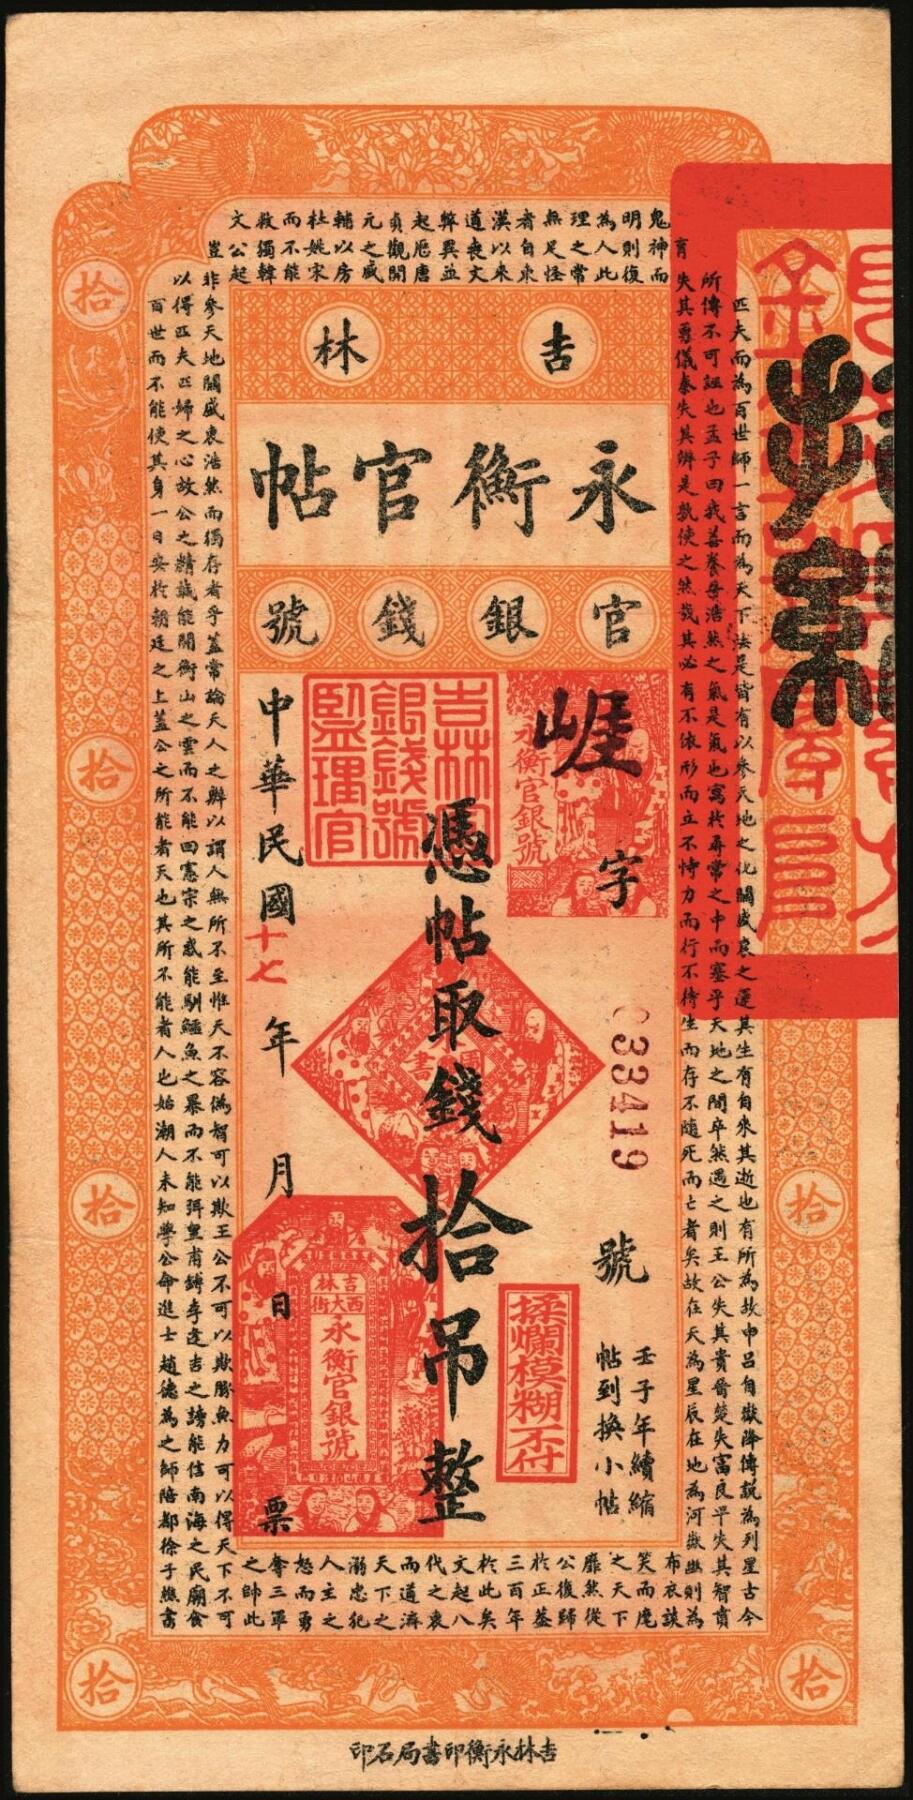 吉林
永衡官帖
官銀錢號
崖字
永衡官銀號
033419
號
壬子年續縮
帖到換小帖
揉爛模糊不付
憑帖取錢拾吊整
吉林官
銀錢號
監理官
中華民國十七年月日票
吉林
西大街
永衡官銀號
拾
拾
拾
拾
拾
拾
匹夫而為百世師一言而為天下法是皆有以參天地之化關盛衰之運其生有自來其逝也有所為故申呂自嶽降傅說為列星古今
所傳不可誣也孟子曰我善養吾浩然之氣是氣也寓於尋常之中而塞乎天地之間卒然遇之則王公失其貴晉楚失富良平失其智賁
育失其勇儀秦失其辨是孰使之然哉其必有不依形而立不恃力而行不待生而存不隨死而亡者矣故在天為星辰在地為河嶽幽則為
鬼神而
明則復
為人此
理之常
無足怪
者自東
漢以來
道喪文
弊異並
起歷唐
貞觀開
元之盛
輔以房
杜姚宋
而不能
救獨韓
文公起
布衣談
笑而麾
之天下
靡然從
公復歸
於正蓋
三百年
於此矣
文起八
代之衰
而道濟
天下之
溺忠犯
人主之
怒而勇
奪三軍
之帥此
豈非參天地關盛衰浩然而獨存者乎蓋常論天人之辨以謂人無所不至惟天不容偽智可以欺王公不可以欺豚魚力可以得天下不可
以得匹夫匹婦之心故公之精誠能開衡山之雲而不能回憲宗之惑能馴鱷魚之暴而不能弭皇甫鎛李逢吉之謗能信南海之民廟食
百世而不能使其身一日安於朝廷之上蓋公之所能者天也其所不能者人也始潮人未知學公命進士趙德為之師陪都徐子
吉林永衡印書局石印